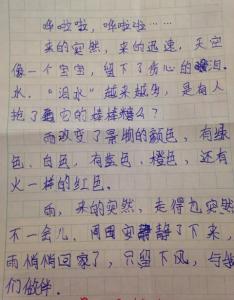 哗啦啦，哗啦啦……
来的突然，来的迅速，天空
像一个宝宝，留下了伤心的泪
水。“泪水”越来越多，是有人
抢了它的棒棒糖么？
雨改变了景物的颜色，有绿
色、白色，有蓝色、橙色，还有
火一样的红色。
雨，来的突然，走得也突然
不一会儿，周围安静了下来，
雨悄悄回家了，只留下风，与
们做伴。